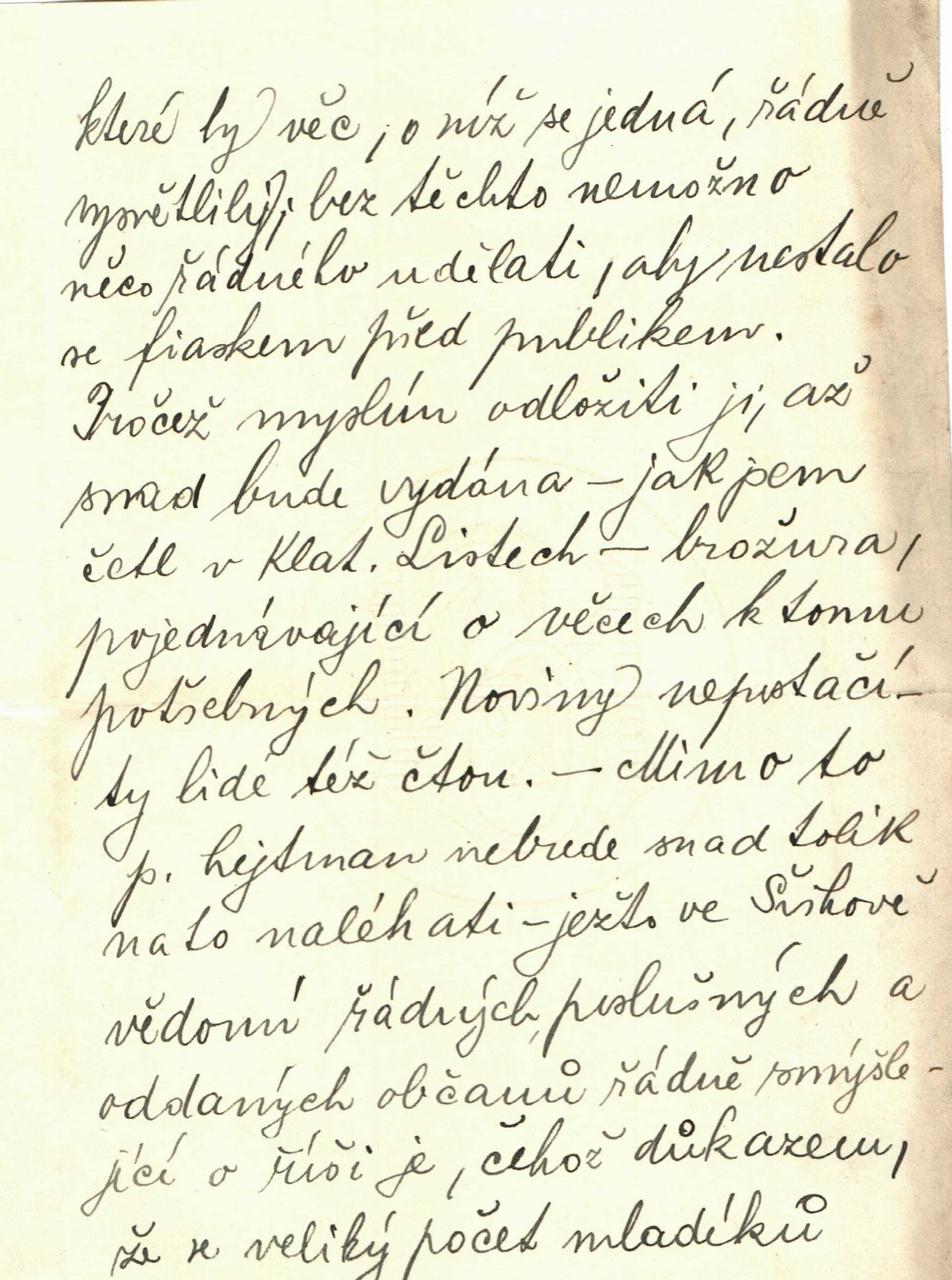 které by věc, o níž se jedná, řádně
vysvětlily; bez těchto nemožno
něco řádného udělati, aby nestalo
se fiaskem před publikem.
Pročež myslím odložiti ji, až
snad bude vydána – jak jsem
četl v Klat. Listech – brožura,
pojednávající o věcech k tomu
potřebných. Noviny nepostačí –
ty lidé též čtou. – Mimo to
p. hejtman nebude snad tolik
na to naléhati – ježto ve
vědomí řádných, poslušných a
oddaných občanů řádně smýšle-
jící o říši je, čehož důkazem,
že se veliký počet mladíků